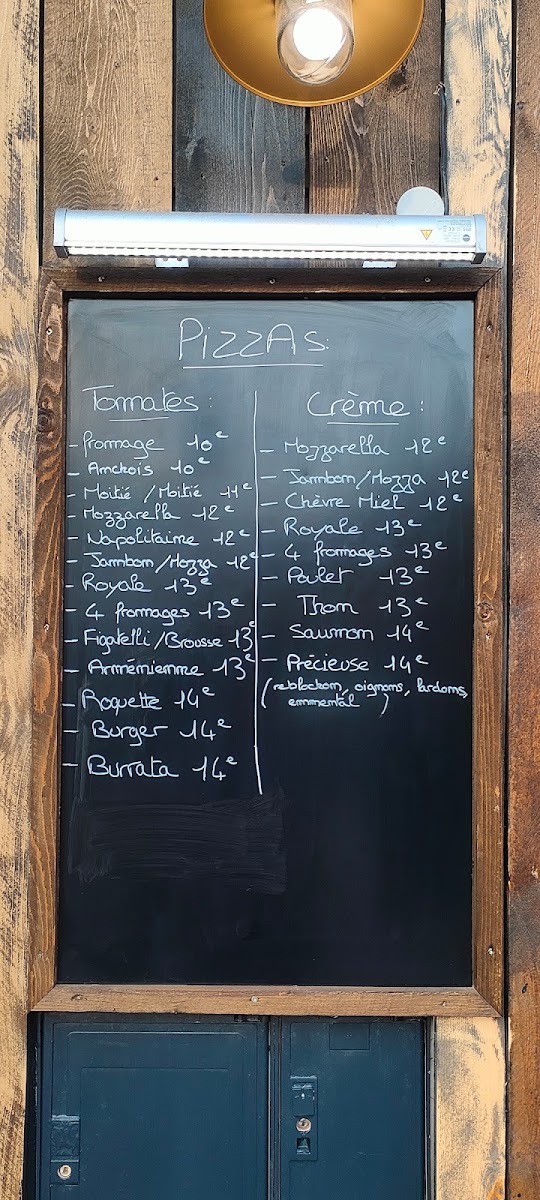 PizzAs:
Tomates:
- fromage 10€
- Anchois 10€
- Moitié / Moitié 11€
- Mozzarella 12€
- Napolitaine 12€
- Jambon/Mozza 12€
- Royale 13€
- 4 fromages 13€
- Figatelli/Brousse 13€
- Arménienne 13€
- Roquette 14€
- Burger 14€
- Burrata 14€
Crème:
- Mozzarella 12€
- Jambon/Mozza 12€
- Chèvre Miel 12€
- Royale 13€
- 4 fromages 13€
- Poulet 13€
- Thon 13€
- Saumon 14€
- Précieuse 14€
(reblochon, oignons, lardons,
emmental )